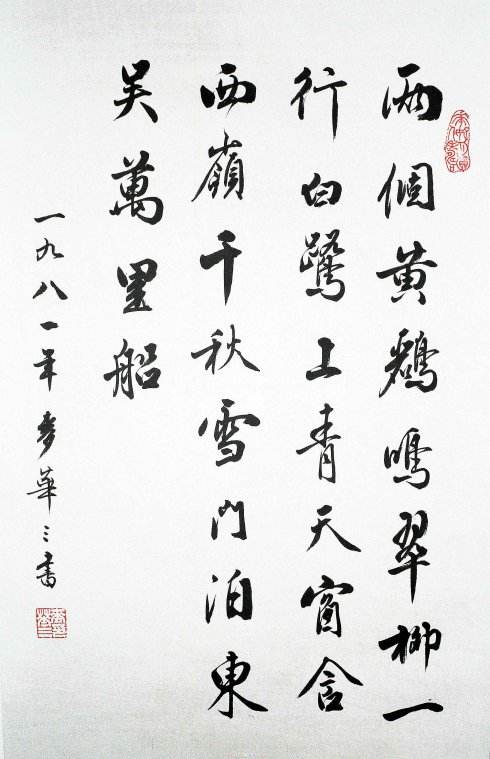 兩個黃鸝鳴翠柳一
行白鷺上青天窗含
西嶺千秋雪門泊東
吳萬里船
一九八一年麥華三書